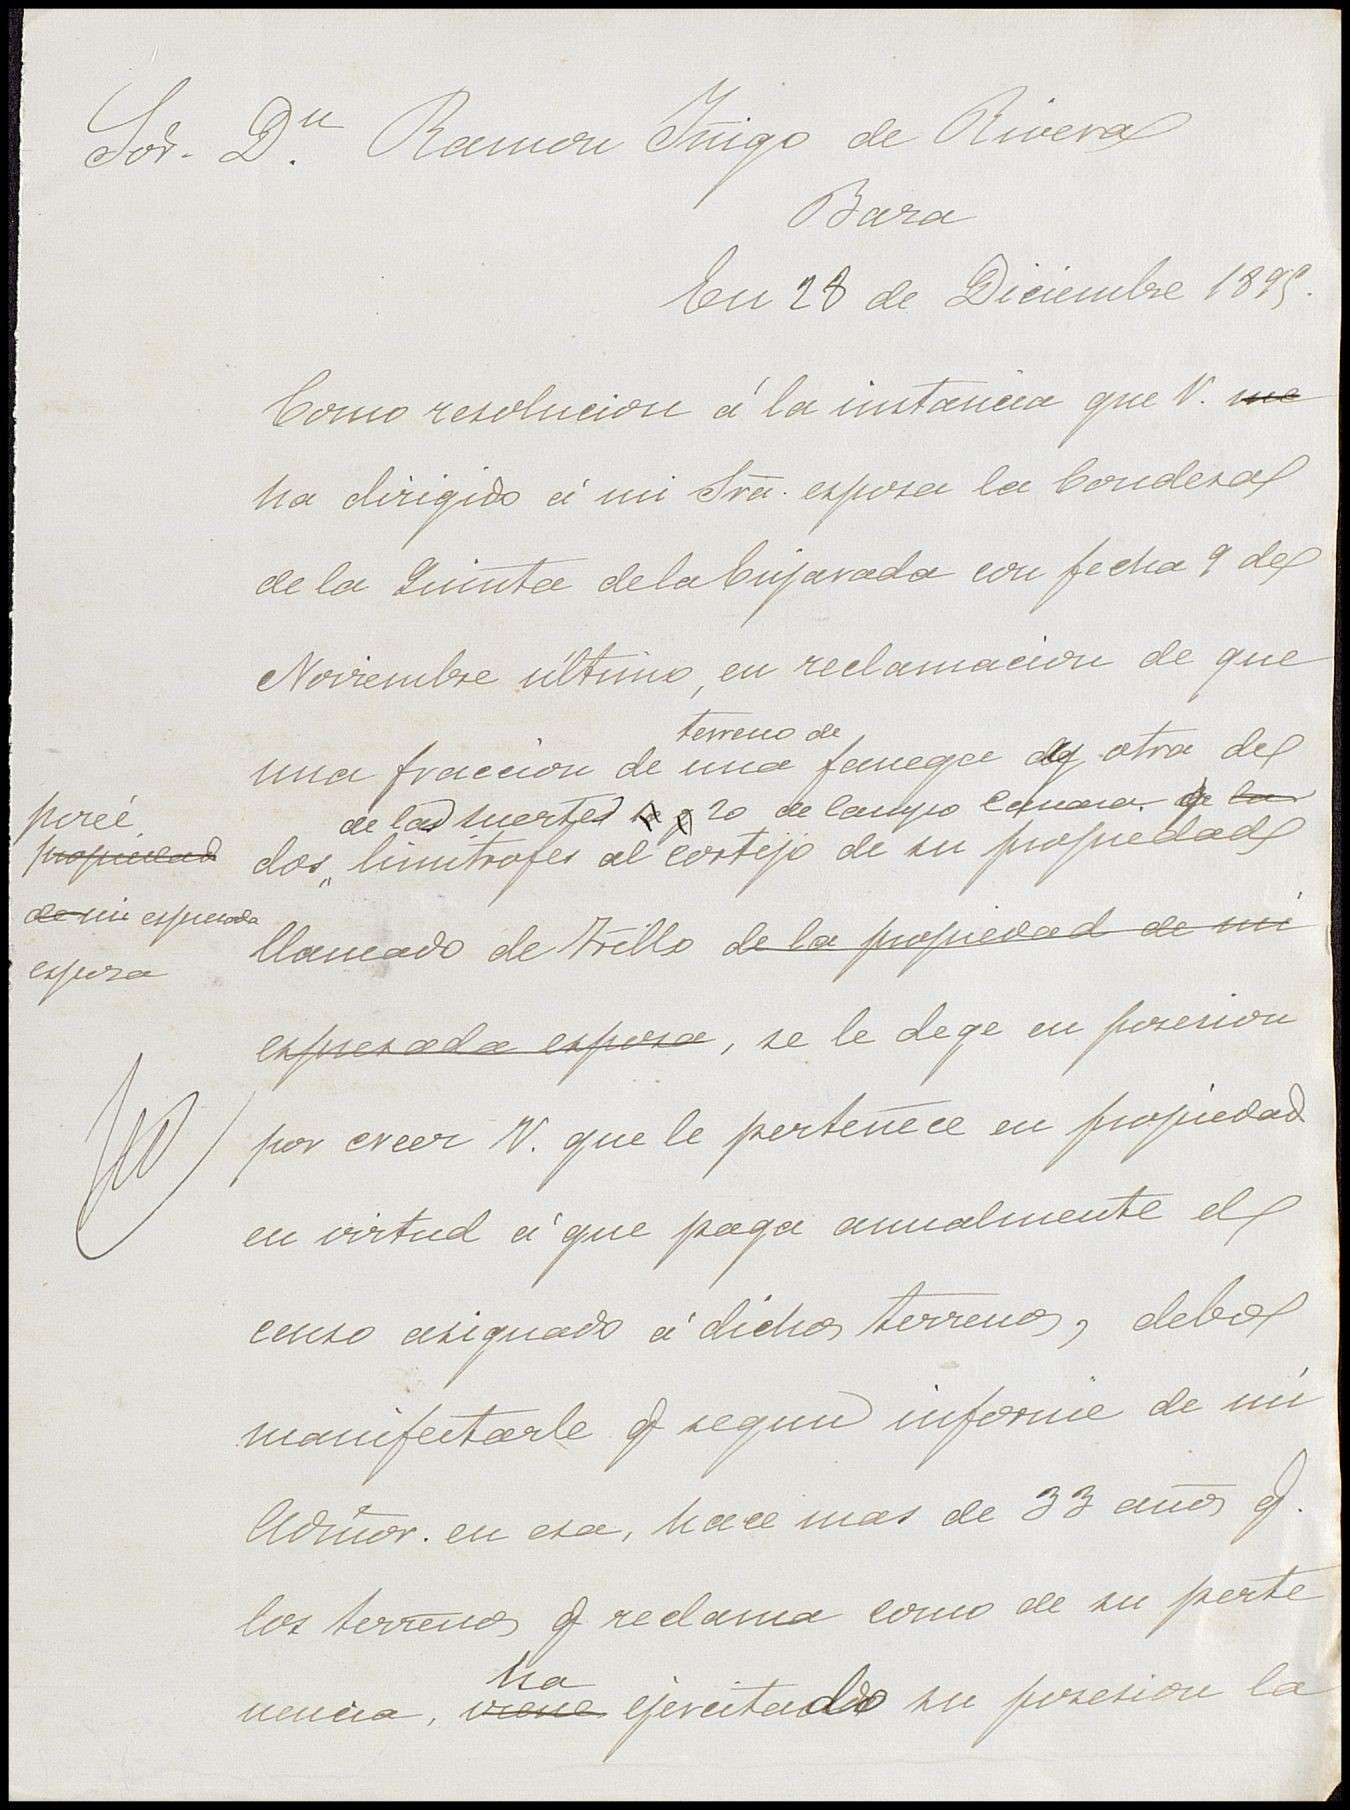 Sor. Dn. Ramon Iñigo de Rivera
Baza
En 28 de Diciembre 1895.
Como resolucion á la instancia que V. me
ha dirigido á mi Sra. esposa la Condesa
de la Quinta de la Enjarada con fecha 9 de
Noviembre último, en reclamacion de que
terreno de
una fraccion de una fanega y otra de
de las suertes 20 de Campo Camara de la
dos, limitrofes al cortijo de su propiedad
llamado de Trillo de la propiedad de mi
espresada esposa, se le dege en posesion
por creer V. que le pertenece en propiedad
en virtud á que paga anualmente el
censo asignado á dichos terrenos, debo
manifestarle q segun informe de mi
Admor. en esa, hace mas de 33 años q.
los terrenos q reclama como de su perte
ha
nencia, viene ejercitado su posesion la
propiedad
de mi espresada
esposa